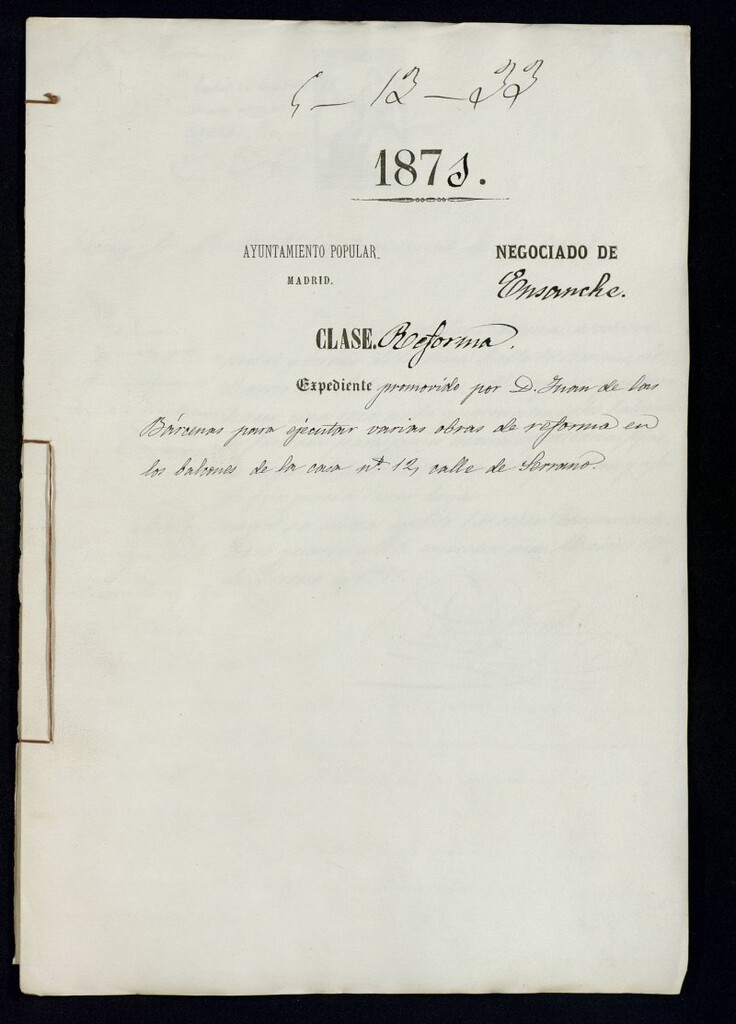 5 - 13 - 33
187
AYUNTAMIENTO POPULAR.
MADRID.
NEGOCIADO DE
Ensanche.
CLASE. Reforma.
Expediente promovido por D. Juan de las
Bárcenas para ejecutar varias obras de reforma en
los balcones de la casa nº 12, calle de Serrano.